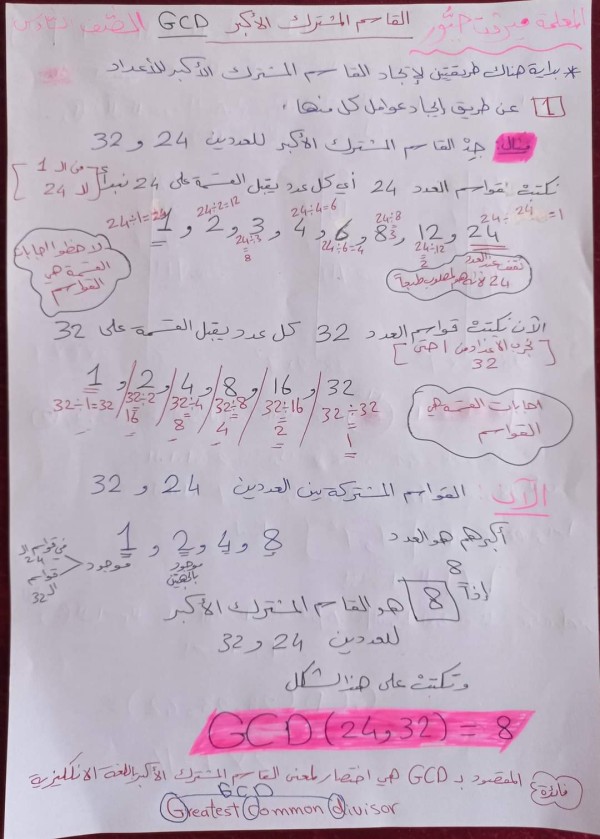 المعلمة ميرفت القاسم المشترك الأكبر GCD الصف السادس
* بداية هناك طريقتين لإيجاد القاسم المشترك الأكبر للأعداد
1 عن طريق إيجاد عوامل كل منها .
مثال: جِدْ القاسم المشترك الأكبر للعددين 24 و 32
نكتب قواسم العدد 24 أي كل عدد يقبل القسمة على 24 نبدأ [من الـ 1 لـ 24]
24÷1=24 24÷2=12 24÷4=6 24÷8 3 24÷24=1
1 و 2 و 3 و 4 و 6 و 8 و 12 و 24
24÷3=8 24÷6=4 24÷12=2
لاحظو اجابات القسمة هي القواسم
نقف عند العدد 24 لأنه هو المطلوب طبعاً
الآن نكتب قواسم العدد 32 كل عدد يقبل القسمة على 32
[نجرب الأعداد من 1 حتى 32]
1 و 2 و 4 و 8 و 16 و 32
32÷1=32 32÷2=16 32÷4=8 32÷8=4 32÷16=2 32÷32=1
اجابات القسمة هي القواسم
الآن: القواسم المشتركة بين العددين 24 و 32
1 و 2 و 4 و 8 أكبرهم هو العدد 8
موجود في قواسم الـ 24 قواسم الـ 32
موجود بالجهتين
إذاً 8 هو القاسم المشترك الأكبر
للعددين 24 و 32
وتكتب على هذا الشكل
GCD(24و32) = 8
فائدة المقصود بـ GCD هي اختصار لمعنى القاسم المشترك الأكبر باللغة الانكليزية
GCD
Greatest Common divisor